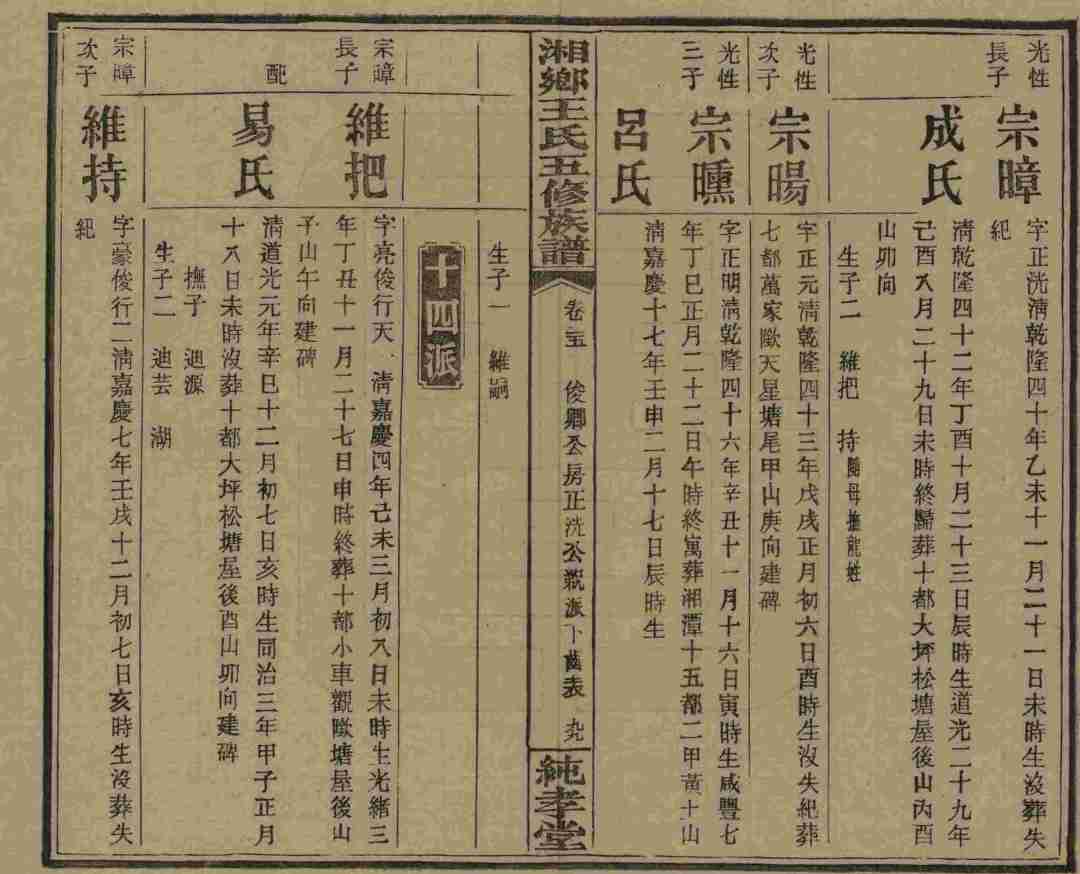 光性
長子
宗暲
字正洗清乾隆四十年乙未十一月二十一日未時生沒葬失
紀
成氏
清乾隆四十二年丁酉十月二十三日辰時生道光二十九年
己酉八月二十九日未時終歸葬十都大坪松塘屋後山丙酉
山卯向
生子二 維把 持隨母撫龍姓
光性
次子
宗暘
字正元清乾隆四十三年戊戌正月初六日酉時生沒失紀葬
七都萬家歐天星塘尾甲山庚向建碑
光性
三子
宗曛
字正明清乾隆四十六年辛丑十一月十六日寅時生咸豐七
年丁巳正月二十二日午時終寓葬湘潭十五都二甲黃土山
呂氏
清嘉慶十七年壬申二月十七日辰時生
湘鄉王氏五修族譜
卷 俊卿公房正洗公親派下齒表
純孝堂
生子一 維嗣
十四派
宗暲
長子
維把
字亮俊行天一清嘉慶四年己未三月初八日未時生光緒三
年丁丑十一月二十七日申時終葬十都小車觀歐塘屋後山
子山午向建碑
配
易氏
清道光元年辛巳十二月初七日亥時生同治三年甲子正月
十八日未時沒葬十都大坪松塘屋後酉山卯向建碑
撫子 迪源
生子二 迪芸 湖
宗暲
次子
維持
字豪俊行二清嘉慶七年壬戌十二月初七日亥時生沒葬失
紀